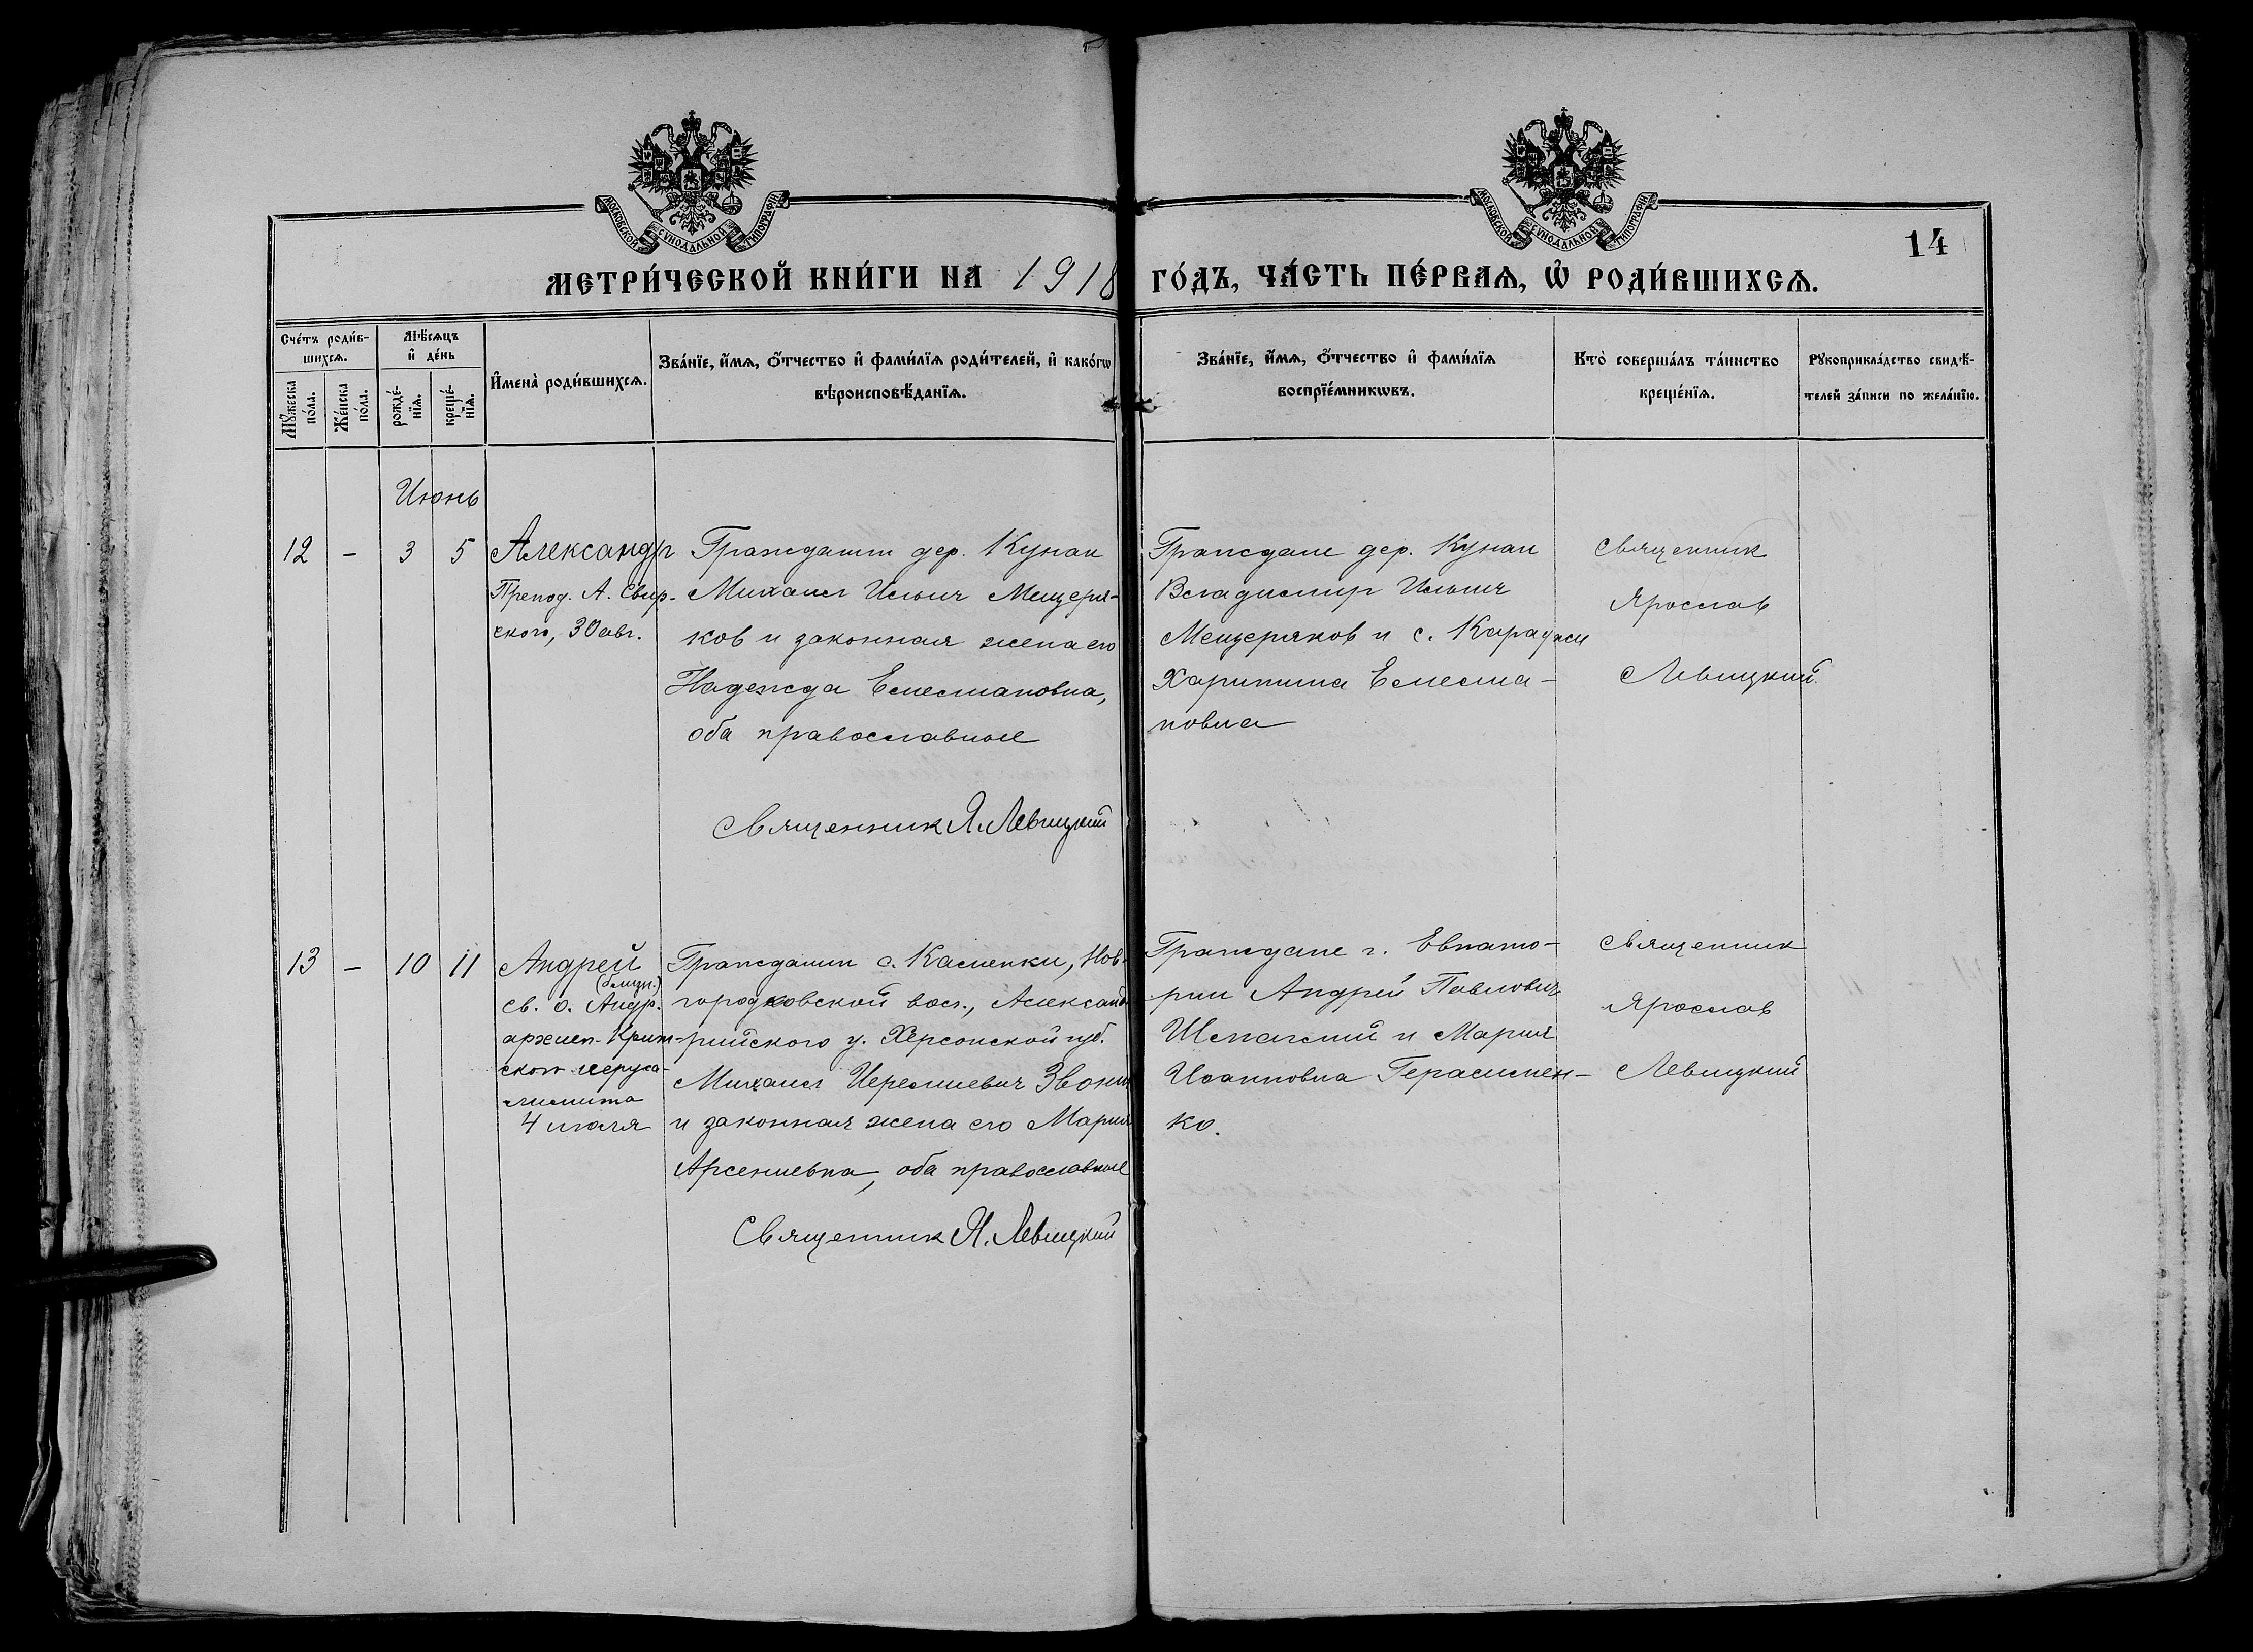 МОСКОВСКОЙ СУНОДАЛЬНОЙ ТИПОГРАФІИ
МОСКОВСКОЙ СУНОДАЛЬНОЙ ТИПОГРАФІИ
14
МЕТРИ́ЧЕСКОЙ КНИ́ГИ НА 1918 ГО́ДЪ, ЧА́СТЬ ПЕ́РВАѦ, Ѡ҆ РОДИ́ВШИХСѦ.
Сче́тъ роди́в-
шихсѧ.
Мѣ́сѧцъ
и҆ де́нь
Мꙋ́жеска
по́ла.
Же́нска
по́ла.
рожде́-
нїѧ.
креще́-
нїѧ.
И҆мена̀ роди́вшихсѧ.
Зва́нїе, и҆́мѧ, ѻ҆́тчество и҆ фами́лїѧ роди́телей, и҆ како́гѡ
вѣроисповѣ́данїѧ.
Зва́нїе, и҆́мѧ, ѻ҆́тчество и҆ фами́лїѧ
воспрїе́мникѡвъ.
Кто̀ соверша́лъ та́инство
креще́нїѧ.
Рꙋкоприкла́дство свидѣ́-
телей за́писи по жела́нїю.
Июнь
12 – 3 5
Александр
Препод. А. Свир-
ского, 30 авг.
Гражданин дер. Кунан
Михаил Ильич Мещеря-
ков и законная жена его
Надежда Емелиановна,
оба православные
Священник Я. Левицкий
Граждане дер. Кунан
Владимир Ильич
Мещеряков и с.
Емелиа-
новна
Священник
Ярослав
Левицкий
13 – 10 11
Андрей
(близн.)
св. о. Андр.
архиеп. Крит-
ского иеруса-
лимита
4 июля
Гражданин с. Каменки, Нов-
городковской вол., Александ-
рийского у. Херсонской губ.
Михаил Иеремиевич
и законная жена его Мария
Арсениевна, оба православные
Священник Я. Левицкий
Граждане г. Евпато-
рии Андрей Павлович
и Мария
Иоанновна Герасимен-
ко.
Священник
Ярослав
Левицкий